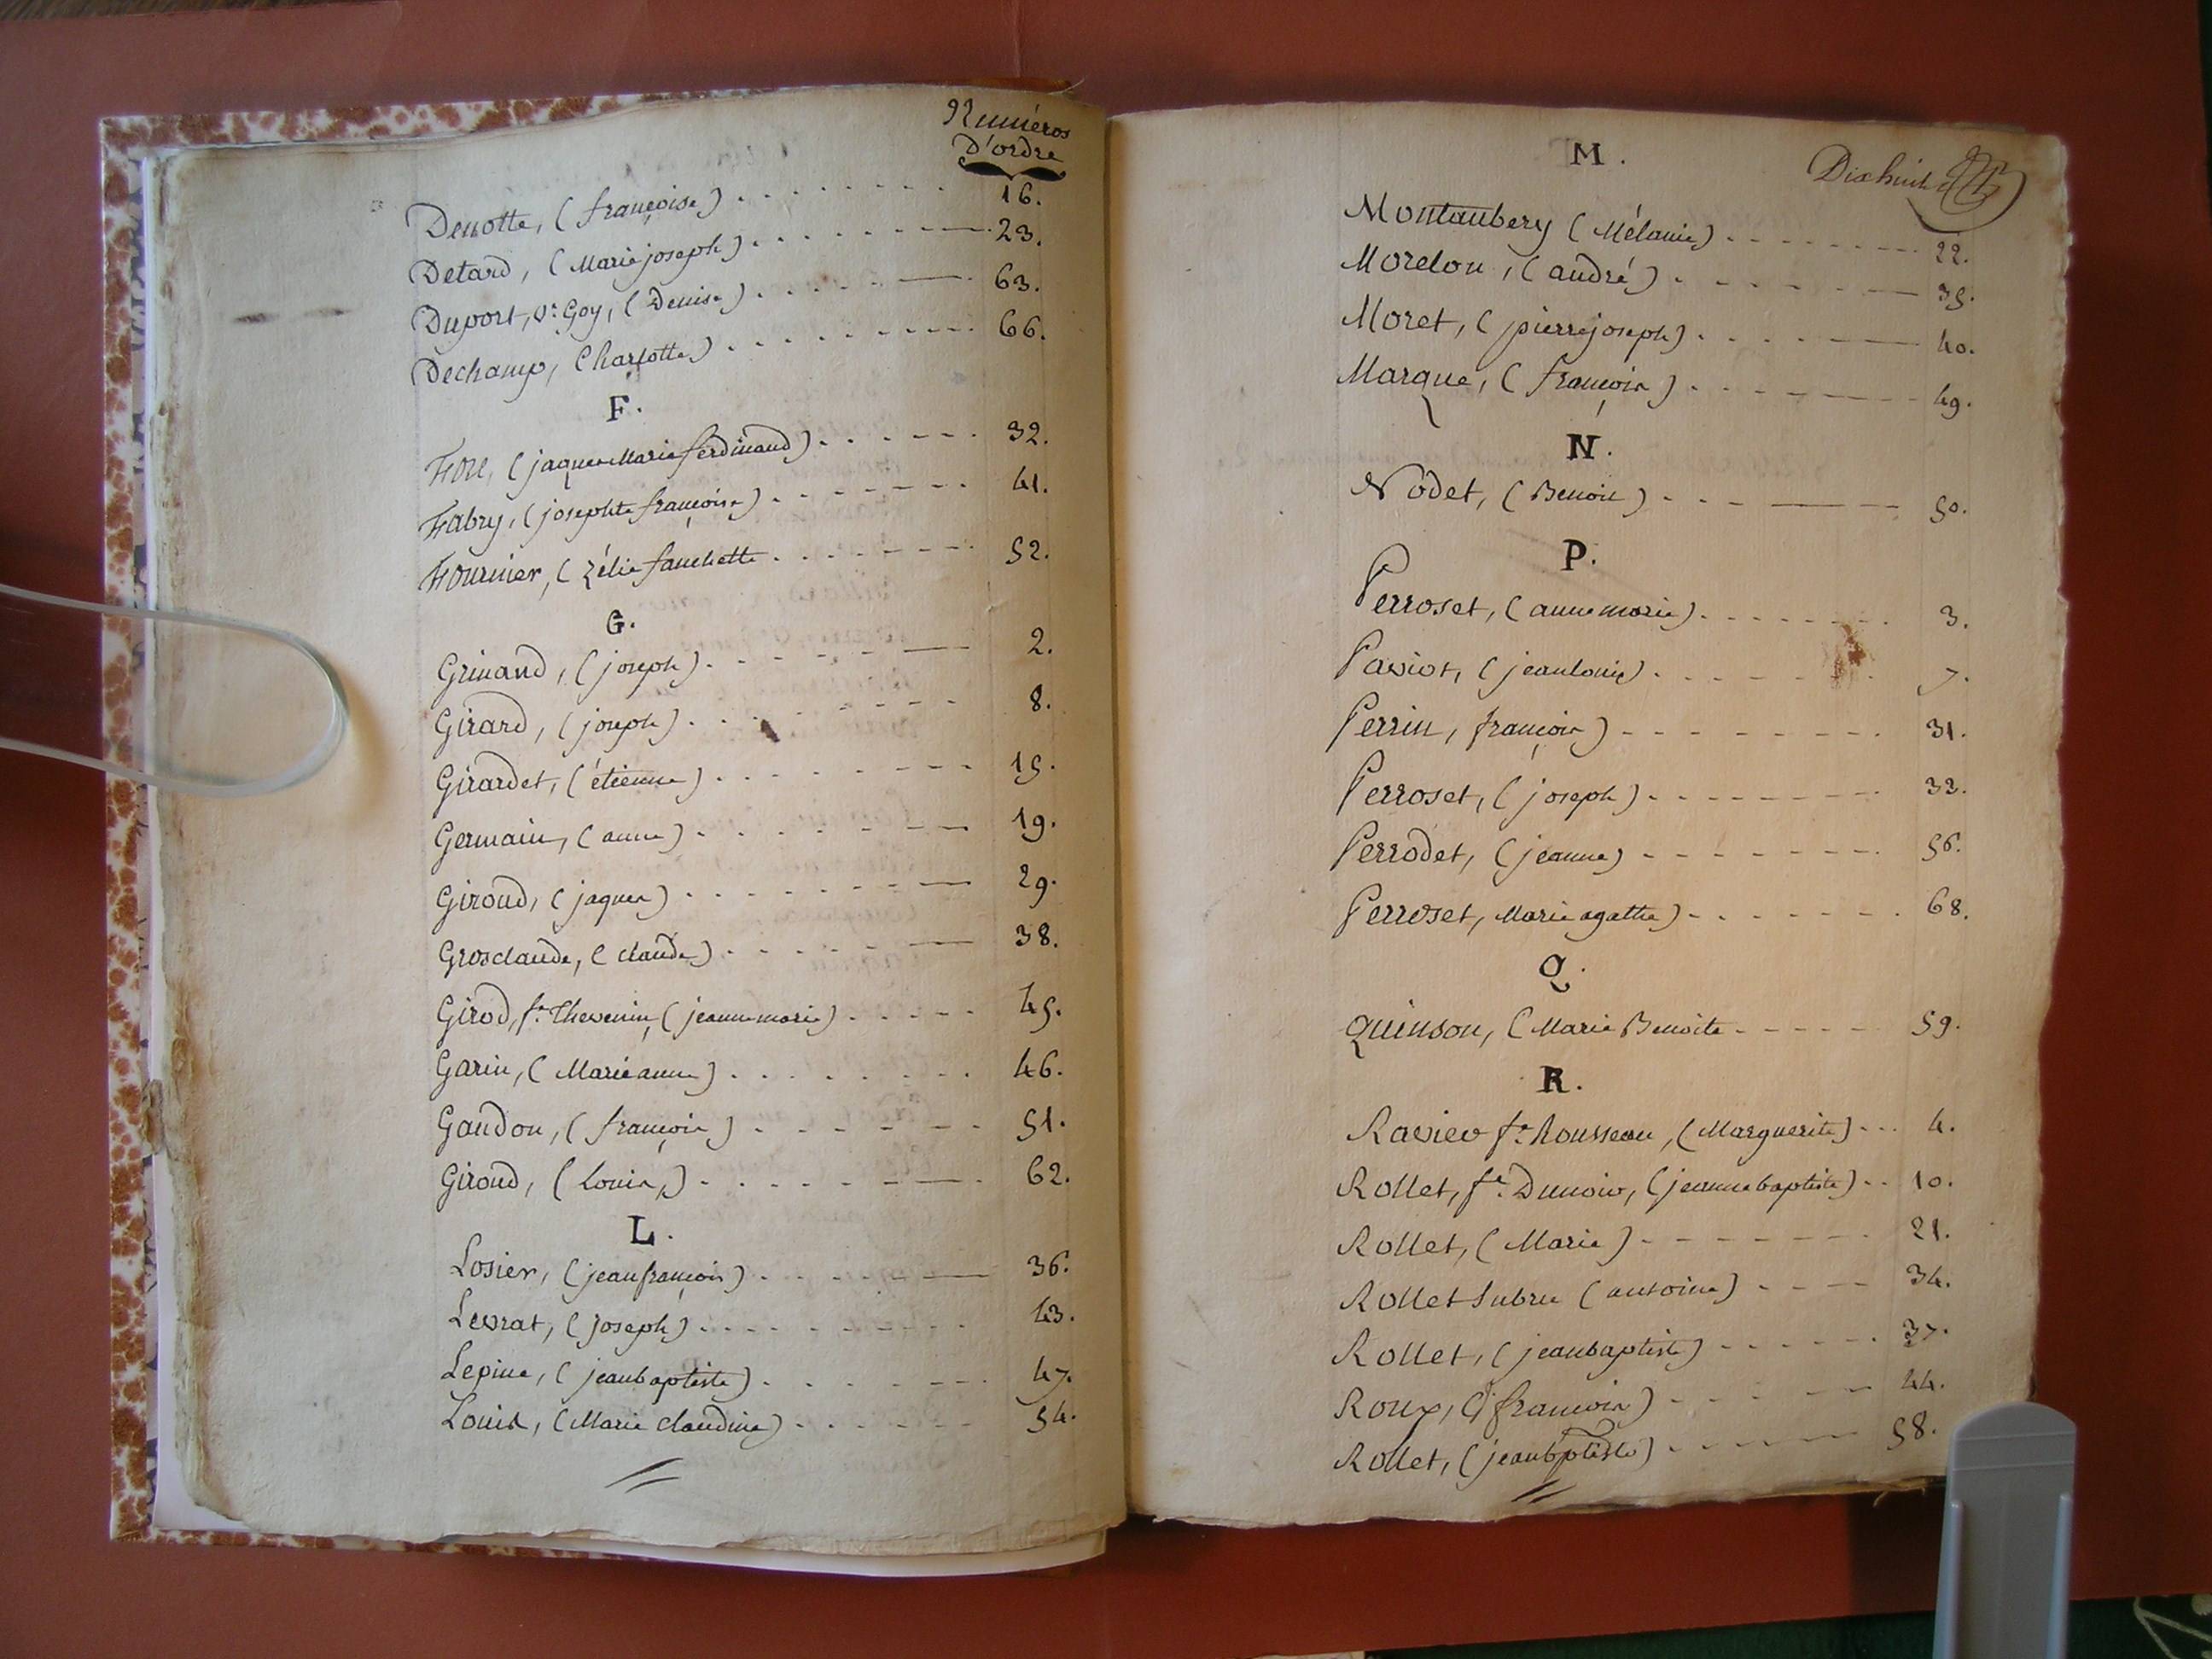 Numéros
D'ordre
Denotte, (françoise) 16.
Detard, (Marie joseph) 23.
Duport, ve. Goy, (Denise) 63.
Dechamp, Charlotte) 66.
F.
Fore, (jaques Marie ferdinand) 32.
Fabry, (josephte françoise) 41.
Fournier, (Zélie fanchette 52.
G.
Grinand, (joseph) 2.
Girard, (joseph) 8.
Girardet, (étienne) 15.
Germain, (anne) 19.
Giroud, (jaques) 29.
Grosclaude, (claude) 38.
Girod, fe. Thevenin, (jeanne marie) 45.
Garin, (Marie anne) 46.
Gaudon, (françois) 51.
Giroud, (Louis,) 62.
L.
Losier, (jean françois) 36.
Levrat, (joseph) 43.
Lepine, (jean baptiste) 47.
Louis, (Marie claudine) 54.
Dix huit
M.
Montaubery (Mélanie) 22.
Morelon, (andré) 35.
Moret, (pierre joseph) 40.
Marque, (françois) 49.
N.
Nodet, (Benoit) 50.
P.
Perroset, (anne marie) 3.
Paviot, (jean louis) 7.
Perrin, françois) 31.
Perroset, (joseph) 33.
Perrodet, (jeanne) 56.
Perroset, Marie agathe) 68.
Q.
Quinson, (Marie Benoite 59.
R.
Ravier fe. Rousseau, (Marguerite) 4.
Rollet, fe. Dunoir, (jeanne baptiste) 10.
Rollet, (Marie) 21.
Rollet Subru (antoine) 34.
Rollet, (jean baptiste) 37.
Roux, (françois) 44.
Rollet, (jean bptiste) 58.